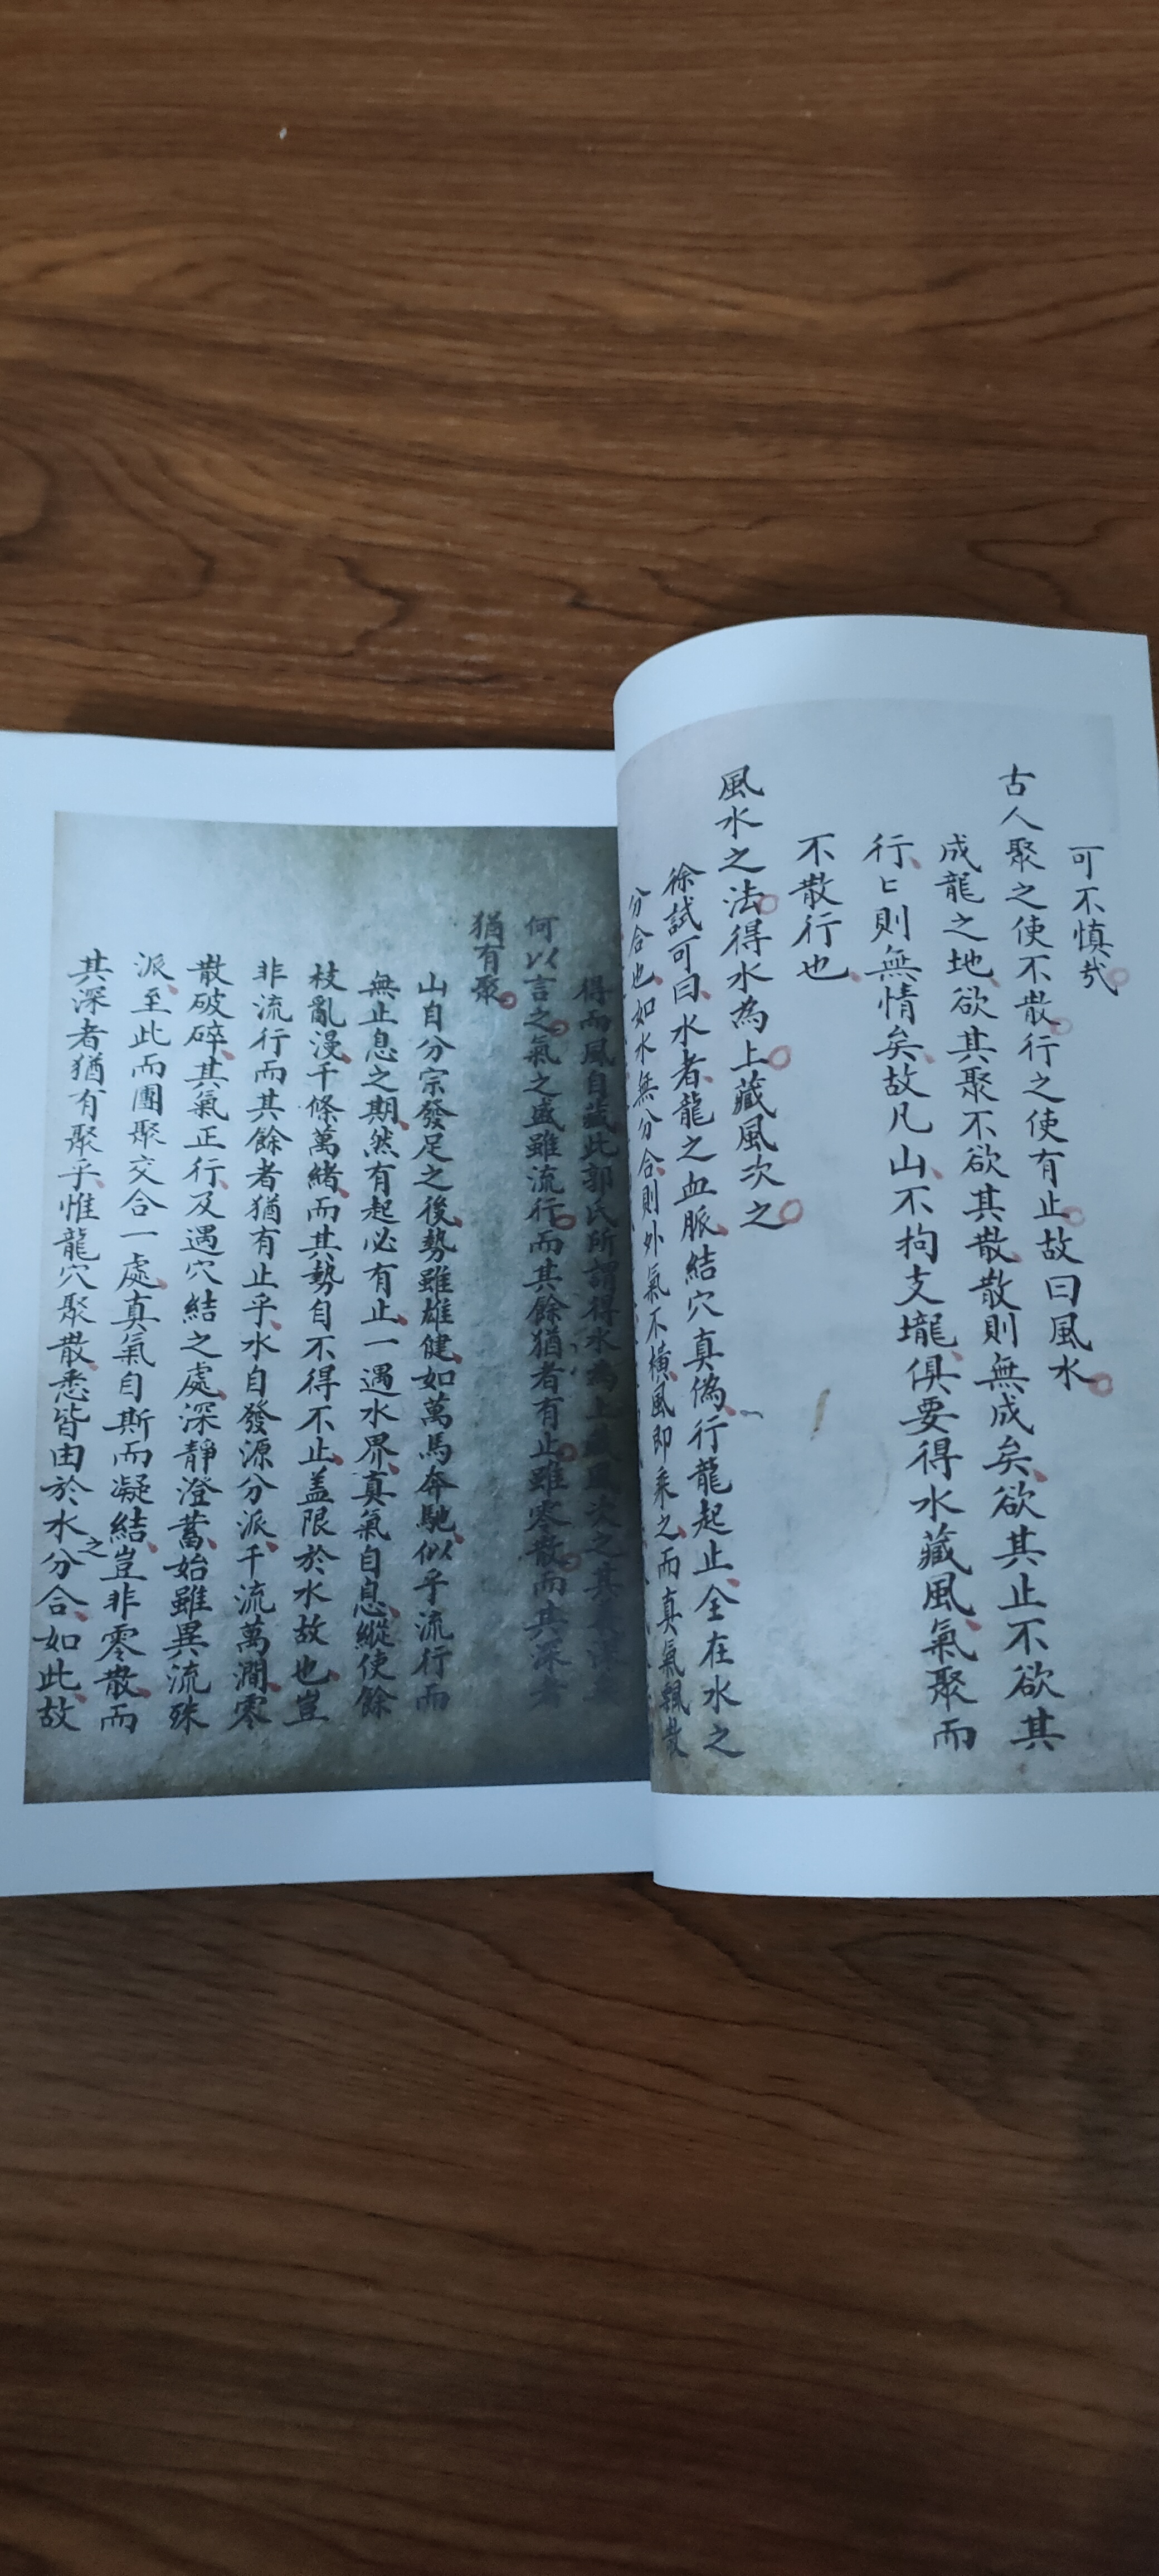 可不慎哉
古人聚之使不散行之使有止故曰風水
成龍之地欲其聚不欲其散散則無成矣欲其止不欲其
行〻則無情矣故凡山不拘支壠俱要得水藏風氣聚而
不散行也
風水之法得水為上藏風次之
徐試可曰水者龍之血脈結穴真偽行龍起止全在水之
分合也如水無分合則外氣不橫風即乘之而真氣飄散
得而風自藏此郭氏所謂得水為上藏風次之其
何以言之氣之盛雖流行而其餘猶者有止雖零散而其深者
猶有聚
山自分宗發足之後勢雖雄健如萬馬奔馳似乎流行而
無止息之期然有起必有止一遇水界真氣自息縱使餘
枝亂漫千條萬緒而其勢自不得不止盖限於水故也豈
非流行而其餘者猶有止乎水自發源分派千流萬澗零
散破碎其氣正行及遇穴結之處深靜澄蓄始雖異流殊
派至此而團聚交合一處真氣自斯而凝結豈非零散而
其深者猶有聚乎惟龍穴聚散悉皆由於水之分合如此故